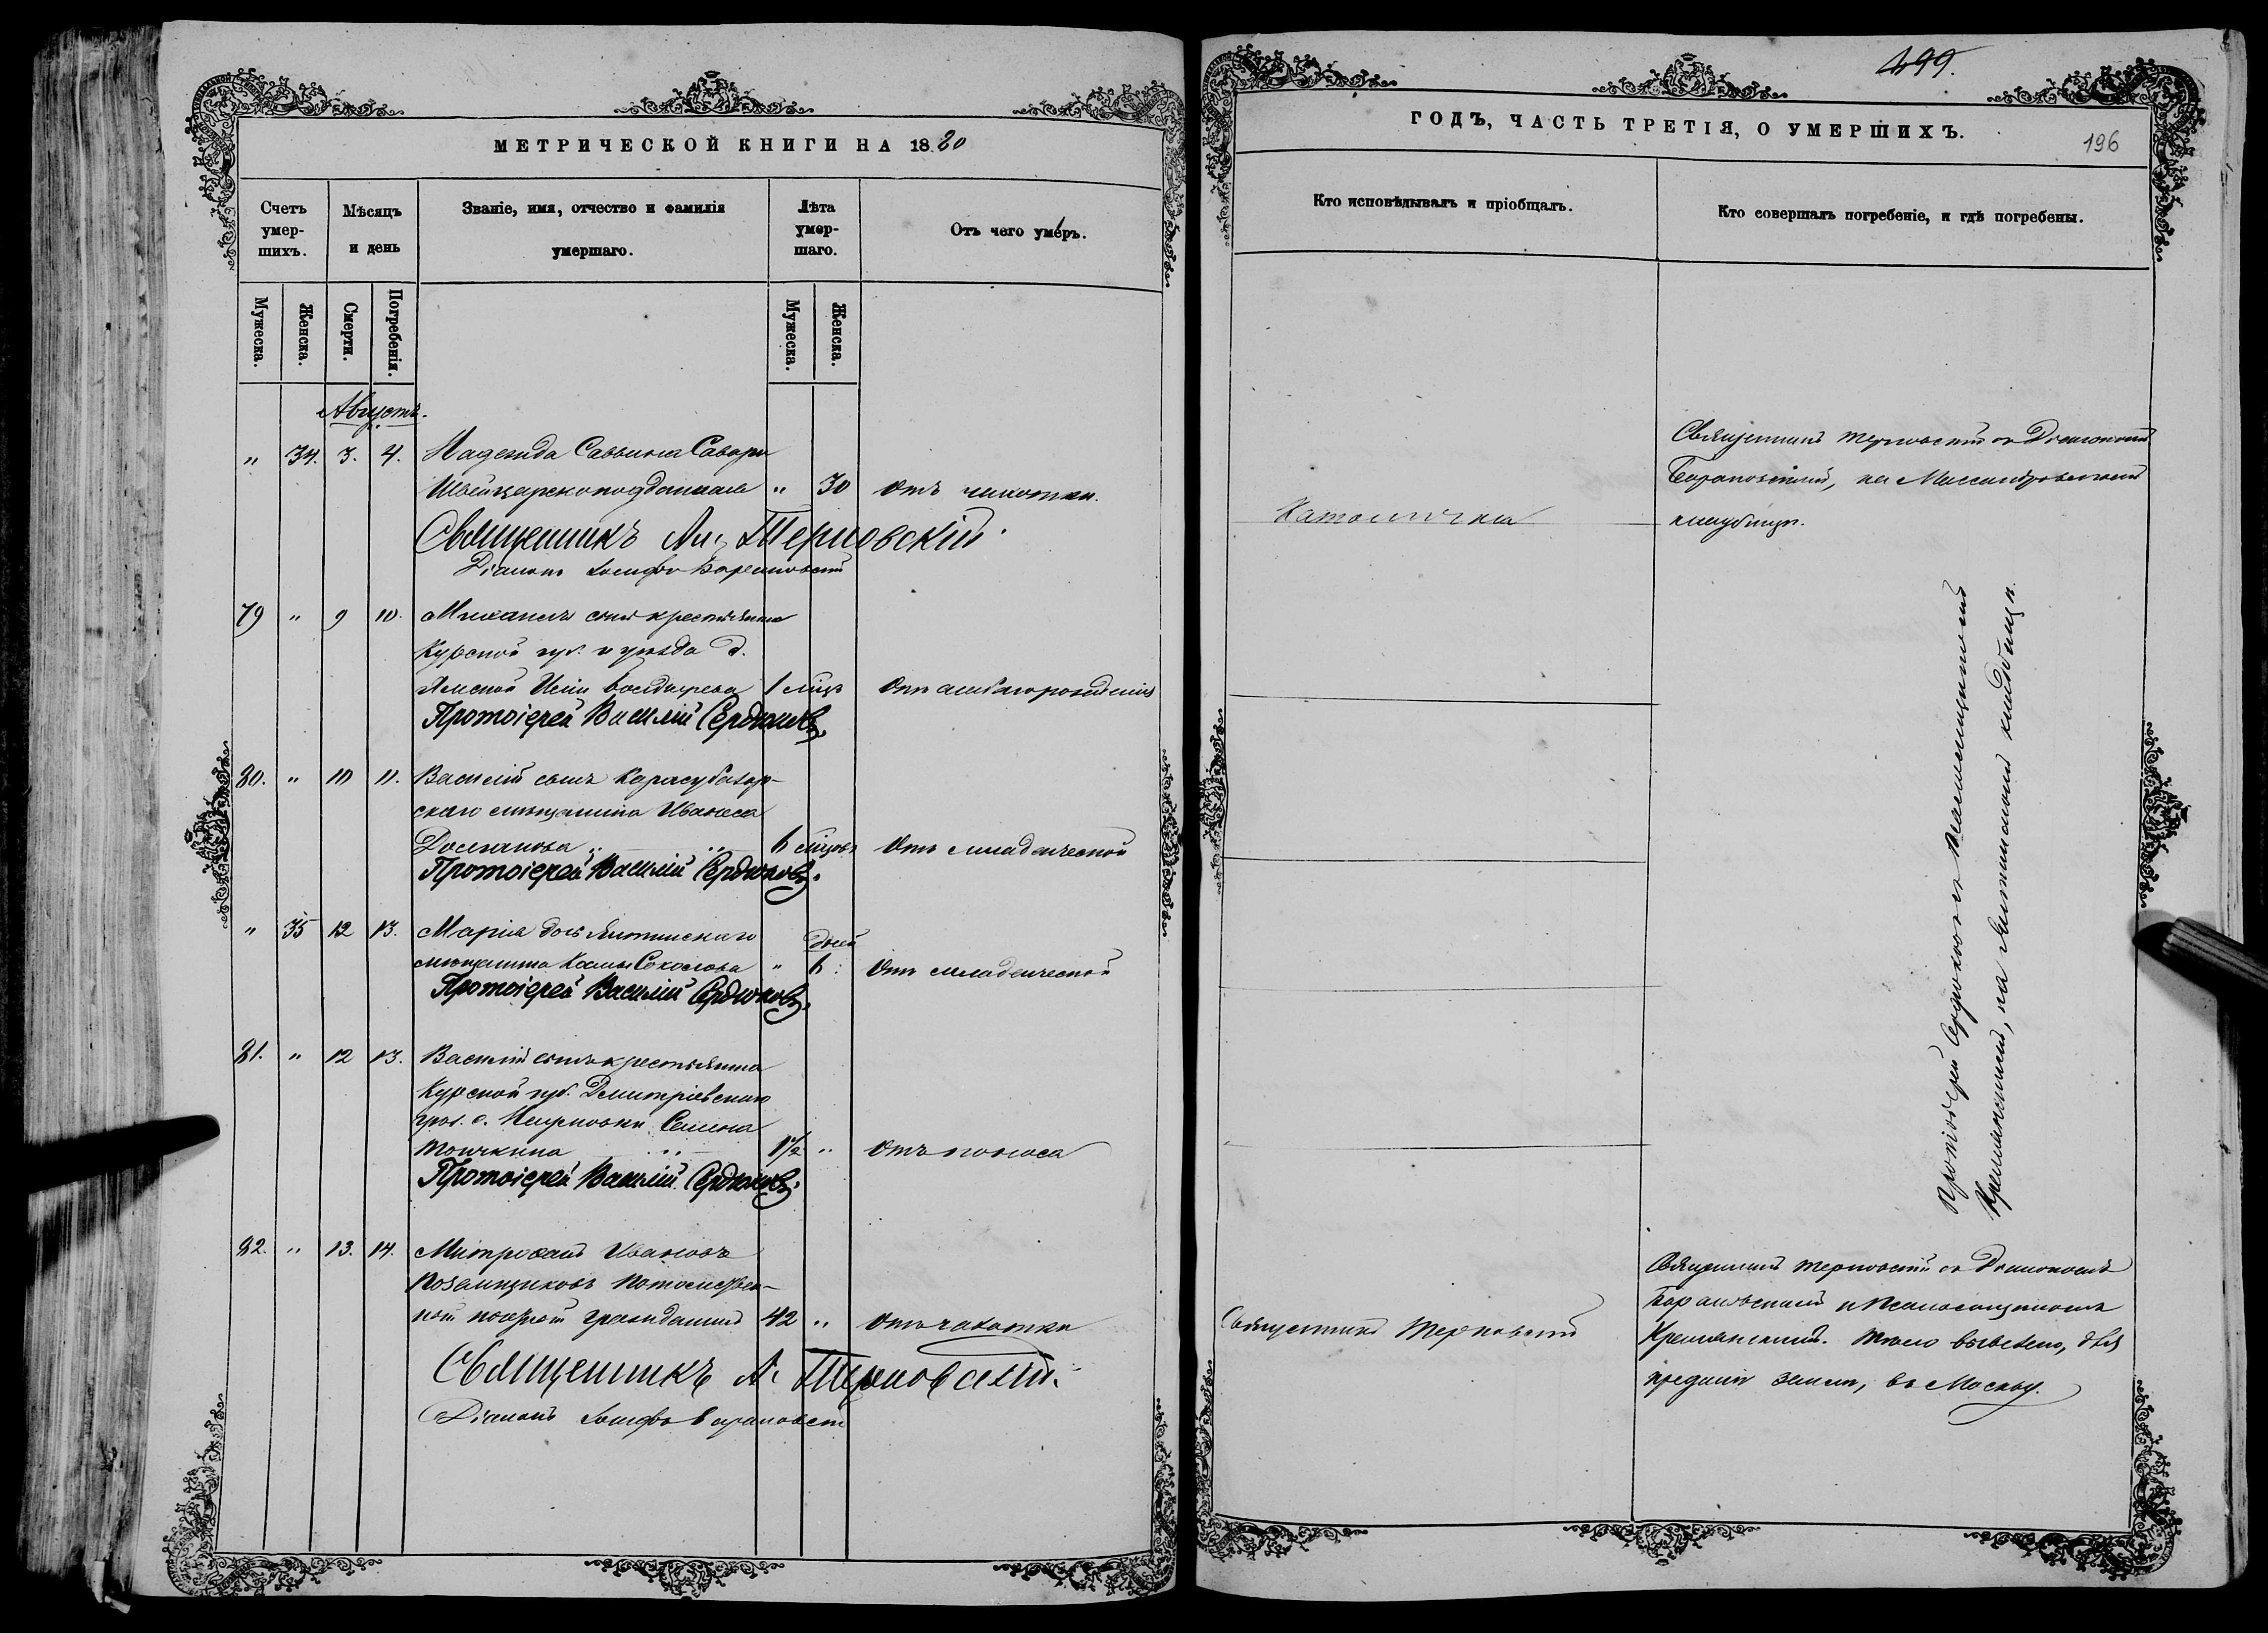 МЕТРИЧЕСКОЙ КНИГИ НА 1880
Счетъ умер-шихъ.
Мѣсяцъ и день
Званіе, имя, отчество и фамилія умершаго.
Лѣта умер-шаго.
Отъ чего умеръ.
Мужеска.
Женска.
Смерти.
Погребенія.
Мужеска.
Женска.
Августъ.
" 34. 3. 4. Надежда Саввина Савари
Швейцарскоподданная " 30 отъ чахотки.
Священникъ Ал. Терновскій
Діаконъ Іосифъ Барановскій
79 " 9 10. Михаилъ сынъ крестьянина
Курской губ. и уѣзда д.
Ямской 1 мѣс отъ слабаго рожденія
Протоіерей Василій Сердюковъ
80. " 10 11. Василій сынъ Карасубазар-
скаго мѣщанина Ивана
6 мѣсяц. отъ младенческой
Протоіерей Василій Сердюковъ.
" 35 12 13. Марія дочь Ялтинскаго дней
мѣщанина Соколова " 6: отъ младенческой
Протоіерей Василій Сердюковъ.
81. " 12 13. Василій сынъ крестьянина
Курской губ. Дмитріевскаго
Семена
Точкина 1½ " отъ поноса
Протоіерей Василій Сердюковъ.
82. " 13. 14. Митрофанъ Ивановъ
потомствен-
ный почетный гражданинъ 42 " отъ чахотки
Священникъ А. Терновскій.
Діаконъ Іосифъ Барановскій
499.
ГОДЪ, ЧАСТЬ ТРЕТІЯ, О УМЕРШИХЪ.
196
Кто исповѣдывалъ и пріобщалъ.
Кто совершалъ погребеніе, и гдѣ погребены.
Католичка
Священникъ Терновскій съ Діакономъ
Барановскимъ, на Массандровскомъ
кладбищѣ.
Протоіерей Сердюковъ съ Псаломщикомъ
Крещановскимъ, на Ялтинскомъ кладбищѣ.
Священникъ Терновскій
Священникъ Терновскій съ Діакономъ
Барановскимъ и Псаломщикомъ
тѣло вывезено, для
преданія землѣ, въ Москву.